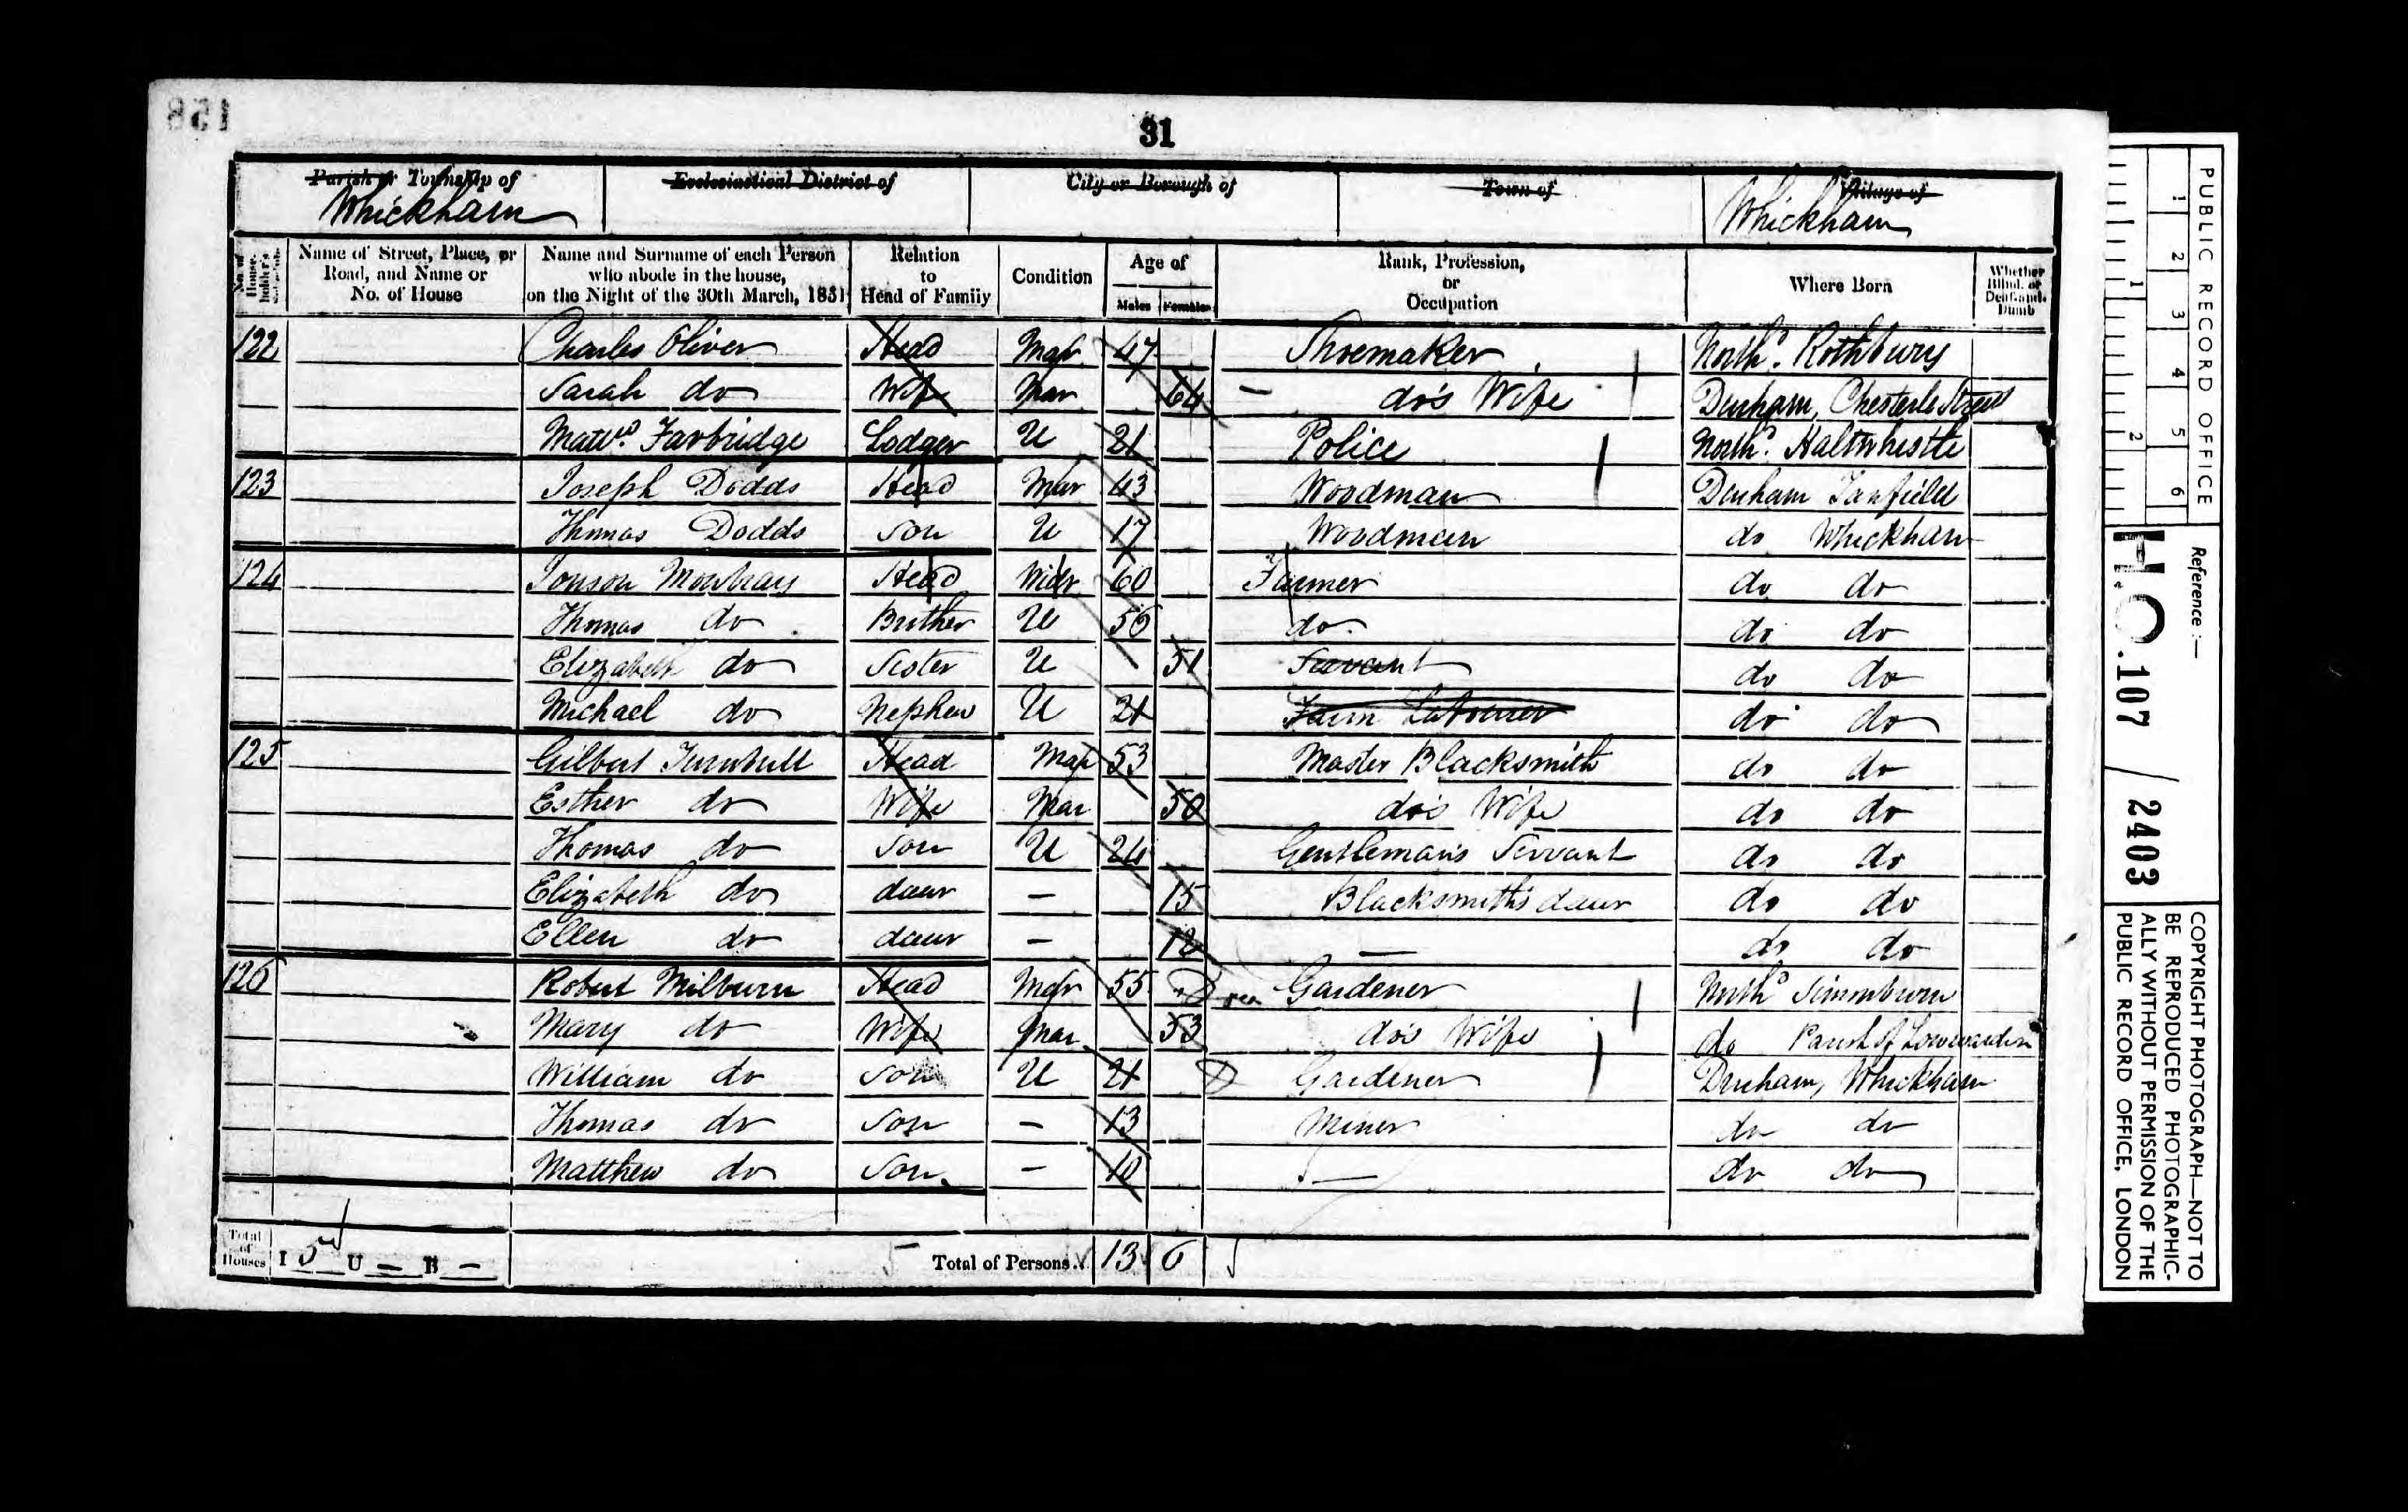 158
31
Parish or Township of Ecclesiastical District of City or Borough of Town of Village of
Whickham Whickham
No. of House-holder's Schedule Name of Street, Place, or Road, and Name or No. of House Name and Surname of each Person who abode in the house, on the Night of the 30th March, 1851 Relation to Head of Family Condition Age of Males Females Rank, Profession, or Occupation Where Born Whether Blind, or Deaf-and-Dumb
122 Charles Oliver Head Mar 47 Shoemaker Northd. Rothbury
Sarah do Wife Mar 64 do's Wife Durham, Chesterle Street
Mattw. Farbridge Lodger U 21 Police Northd. Haltwhistle
123 Joseph Dodds Head Mar 43 Woodman Durham Tanfield
Thomas Dodds Son U 17 Woodman do Whickham
124 Jonson Mowbray Head Widr 60 Farmer do do
Thomas do Brother U 56 do do do
Elizabeth do Sister U 51 Servant do do
Michael do Nephew U 21 Farm Labourer do do
125 Gilbert Turnbull Head Mar 53 Master Blacksmith do do
Esther do Wife Mar 50 do's Wife do do
Thomas do Son U 24 Gentleman's Servant do do
Elizabeth do daur — 15 Blacksmith's daur do do
Ellen do daur — 12 — do do
126 Robert Milburn Head Mar 55 Gardener Northd Simonburn
Mary do Wife Mar 53 do's Wife do Parish of
William do Son U 21 Gardener Durham, Whickham
Thomas do Son — 13 Miner do do
Matthew do Son — 10 — do do
Total of Houses I 5 U — B — Total of Persons 13 6
PUBLIC RECORD OFFICE
1 2 3 4 5 6
1 2
Reference:—
H.O. 107 / 2403
COPYRIGHT PHOTOGRAPH—NOT TO
BE REPRODUCED PHOTOGRAPHIC-
ALLY WITHOUT PERMISSION OF THE
PUBLIC RECORD OFFICE, LONDON